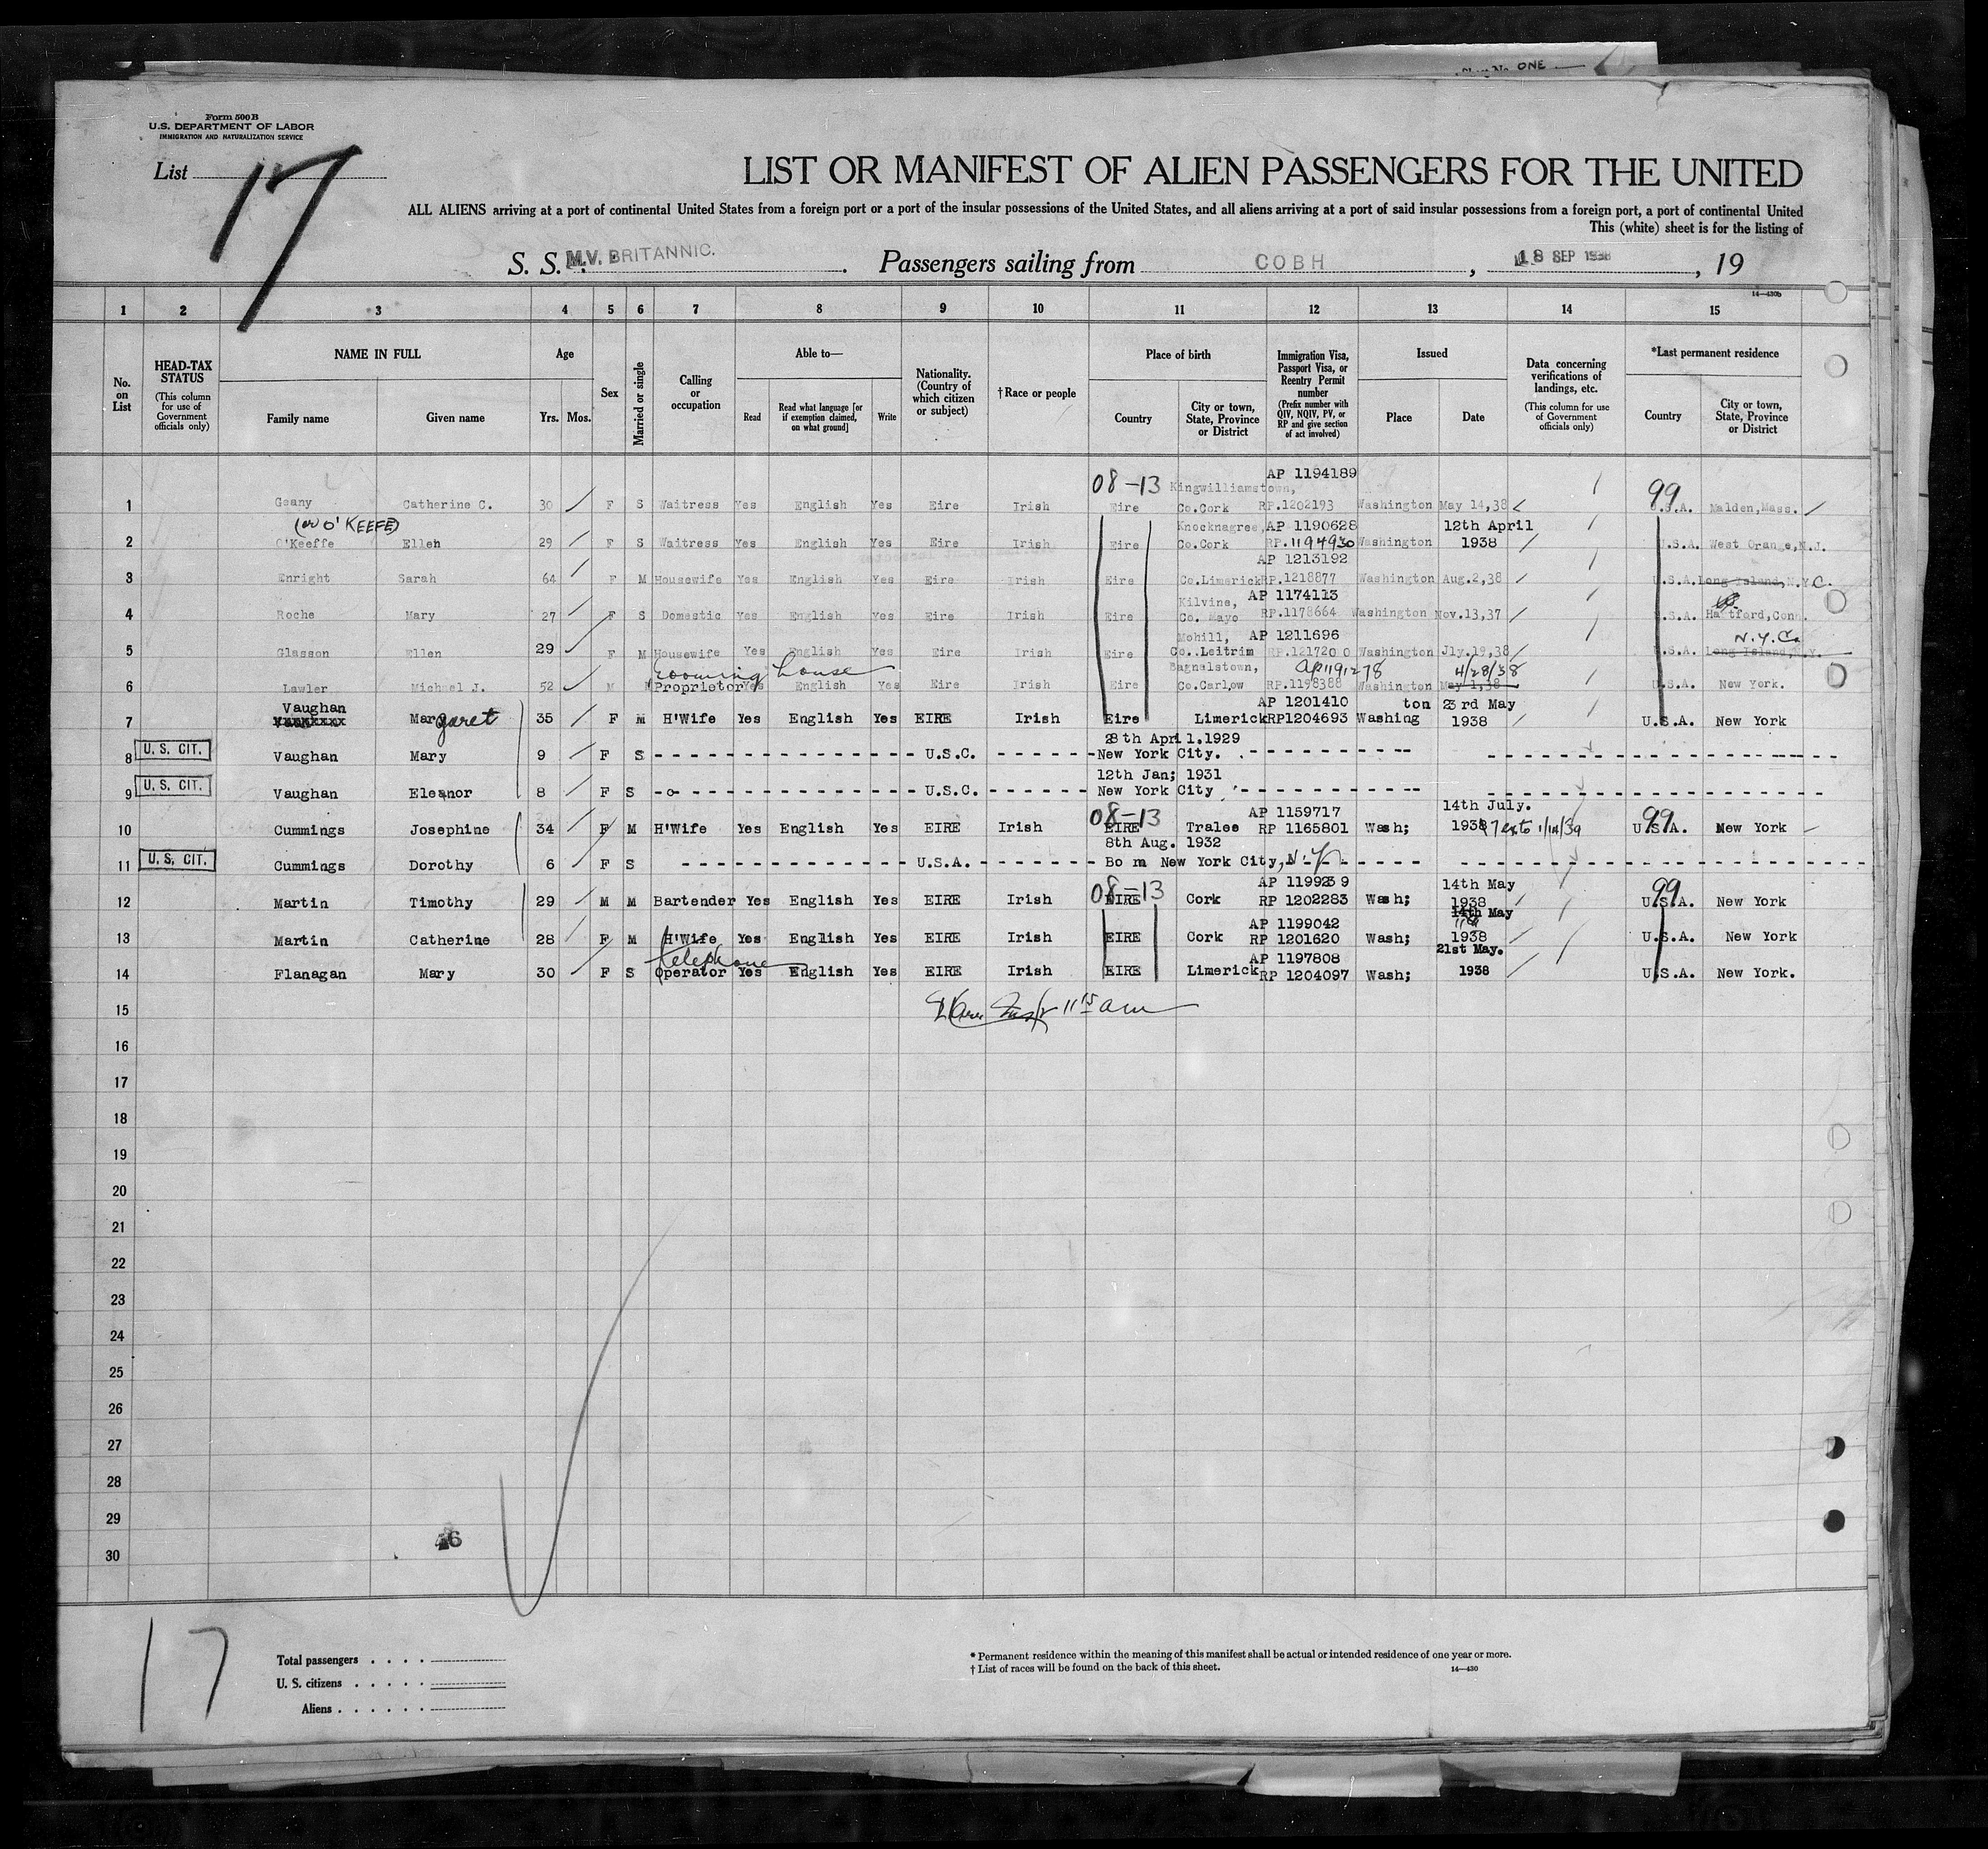 ONE
Form 500 B
U.S. DEPARTMENT OF LABOR
IMMIGRATION AND NATURALIZATION SERVICE
List 17
LIST OR MANIFEST OF ALIEN PASSENGERS FOR THE UNITED
ALL ALIENS arriving at a port of continental United States from a foreign port or a port of the insular possessions of the United States, and all aliens arriving at a port of said insular possessions from a foreign port, a port of continental United
This (white) sheet is for the listing of
S. S. M.V. BRITANNIC. Passengers sailing from COBH, 18 SEP 1938, 19
14—430b
1 2 3 4 5 6 7 8 9 10 11 12 13 14 15
No. on List
HEAD-TAX STATUS
(This column for use of Government officials only)
NAME IN FULL
Family name Given name
Age
Yrs. Mos.
Sex
Married or single
Calling or occupation
Able to—
Read Read what language [or if exemption claimed, on what ground] Write
Nationality. (Country of which citizen or subject)
† Race or people
Place of birth
Country City or town, State, Province or District
Immigration Visa, Passport Visa, or Reentry Permit number
(Prefix number with QIV, NQIV, PV, or RP and give section of act involved)
Issued
Place Date
Data concerning verifications of landings, etc.
(This column for use of Government officials only)
*Last permanent residence
Country City or town, State, Province or District
08-13 Kingwilliamstown, AP 1194189 99
1 Geany Catherine C. 30 F S Waitress Yes English Yes Eire Irish Eire Co.Cork RP.1202193 Washington May 14,38 U.S.A. Malden,Mass.
(or O'KEEFE) Knocknagree, AP 1190628 12th April
2 O'Keeffe Ellen 29 F S Waitress Yes English Yes Eire Irish Eire Co.Cork RP.1194930 Washington 1938 U.S.A. West Orange,N.J.
AP 1213192
3 Enright Sarah 64 F M Housewife Yes English Yes Eire Irish Eire Co.Limerick RP.1218877 Washington Aug.2,38 U.S.A. Long Island, N.Y.C.
Kilvine, AP 1174113
4 Roche Mary 27 F S Domestic Yes English Yes Eire Irish Eire Co. Mayo RP.1178664 Washington Nov.13,37 U.S.A. Hartford,Conn.
Mohill, AP 1211696 N.Y.Co
5 Glasson Ellen 29 F M Housewife Yes English Yes Eire Irish Eire Co.Leitrim RP.1217200 Washington Jly.19,38 U.S.A. Long Island,N.Y.
rooming house Bagnelstown, AP1191278 4/28/38
6 Lawler Michael J. 52 M M Proprietor Yes English Yes Eire Irish Eire Co.Carlow RP.1198388 Washington May 1,38 U.S.A. New York.
Vaughan AP 1201410 ton 23rd May
7 Margaret 35 F M H'Wife Yes English Yes EIRE Irish Eire Limerick RP1204693 Washing 1938 U.S.A. New York
28th April.1929
8 U. S. CIT. Vaughan Mary 9 F S U.S.C. New York City.
12th Jan; 1931
9 U. S. CIT. Vaughan Eleanor 8 F S U.S.C. New York City
08-13 AP 1159717 14th July. 99
10 Cummings Josephine 34 F M H'Wife Yes English Yes EIRE Irish EIRE Tralee RP 1165801 Wash; 1937 ext to 1/14/39 U.S.A. New York
8th Aug. 1932
11 U. S. CIT. Cummings Dorothy 6 F S U.S.A. Born New York City, N.Y.
08-13 AP 1199239 14th May 99
12 Martin Timothy 29 M M Bartender Yes English Yes EIRE Irish EIRE Cork RP 1202283 Wash; 1938 U.S.A. New York
AP 1199042 14th May
13 Martin Catherine 28 F M H'Wife Yes English Yes EIRE Irish EIRE Cork RP 1201620 Wash; 1938 U.S.A. New York
telephone AP 1197808 21st May.
14 Flanagan Mary 30 F S Operator Yes English Yes EIRE Irish EIRE Limerick RP 1204097 Wash; 1938 U.S.A. New York.
15 11 15 am
16
17
18
19
20
21
22
23
24
25
26
27
28
29
30
17
Total passengers
U. S. citizens
Aliens
* Permanent residence within the meaning of this manifest shall be actual or intended residence of one year or more.
† List of races will be found on the back of this sheet.
14—430